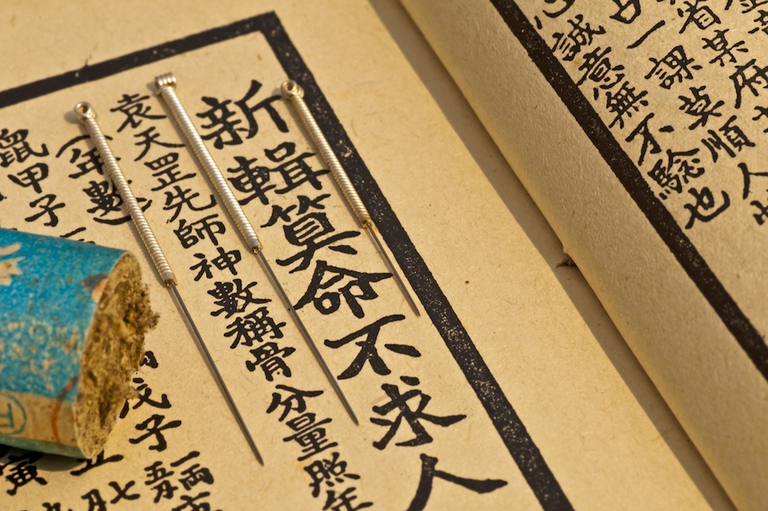 省某府
占一課莫順人
心誠意無不驗也
新輯算命不求人
袁天罡先師神數稱骨分量照年
(年數)
鼠甲子
戊子一兩五